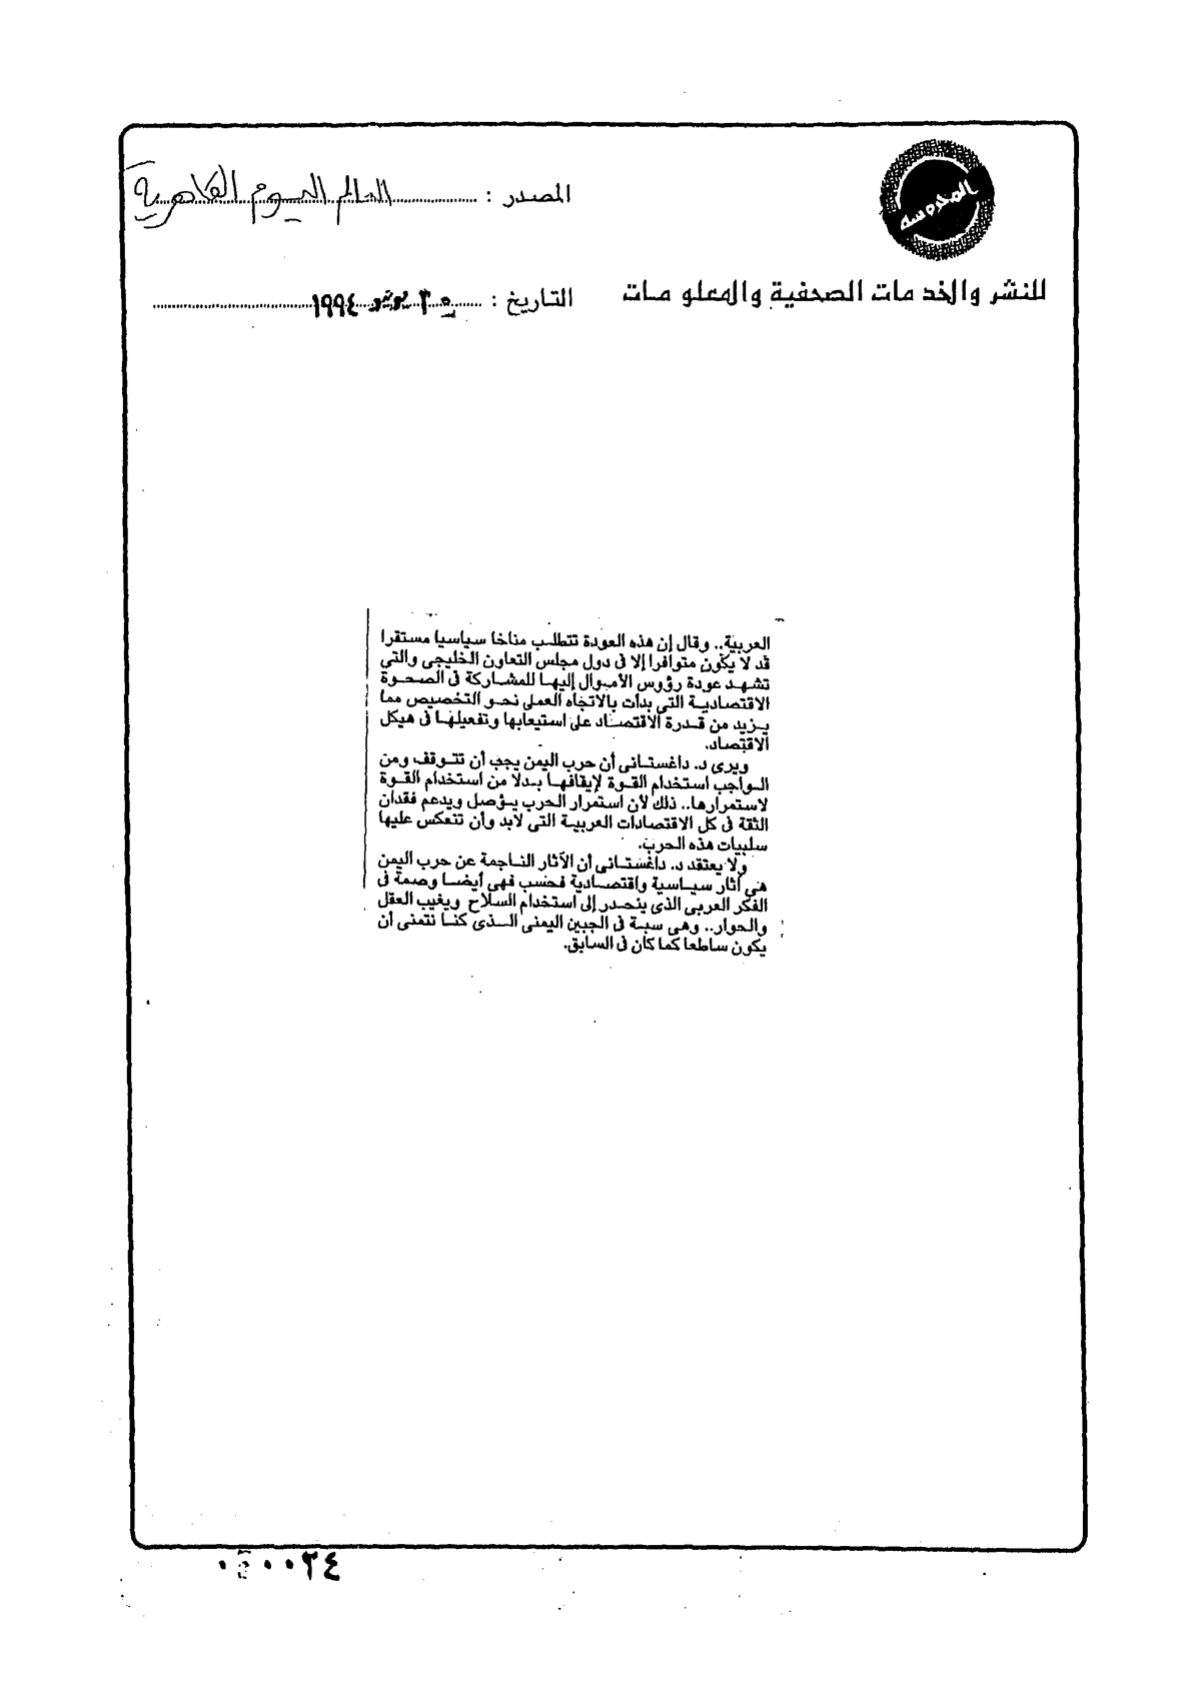 المحروسة
المصدر : العالم اليوم القاهرية
للنشر والخدمات الصحفية والمعلومات
التاريخ : ٣٠ يونيو ١٩٩٤
العربية.. وقال إن هذه العودة تتطلب مناخا سياسيا مستقرا
قد لا يكون متوافرا إلا فى دول مجلس التعاون الخليجى والتى
تشهد عودة رؤوس الأموال إليها للمشاركة فى الصحوة
الاقتصادية التى بدأت بالاتجاه العملى نحو التخصيص مما
يزيد من قدرة الاقتصاد على استيعابها وتفعيلها فى هيكل
الاقتصاد.
ويرى د. داغستانى أن حرب اليمن يجب أن تتوقف ومن
الواجب استخدام القوة لإيقافها بدلا من استخدام القوة
لاستمرارها.. ذلك لأن استمرار الحرب يؤصل ويدعم فقدان
الثقة فى كل الاقتصادات العربية التى لابد وأن تنعكس عليها
سلبيات هذه الحرب.
ولا يعتقد د. داغستانى أن الآثار الناجمة عن حرب اليمن
هى آثار سياسية واقتصادية فحسب فهى أيضا وصمة فى
الفكر العربى الذى ينحدر إلى استخدام السلاح ويغيب العقل
والحوار.. وهى سبة فى الجبين اليمنى الذى كنا نتمنى أن
يكون ساطعا كما كان فى السابق.